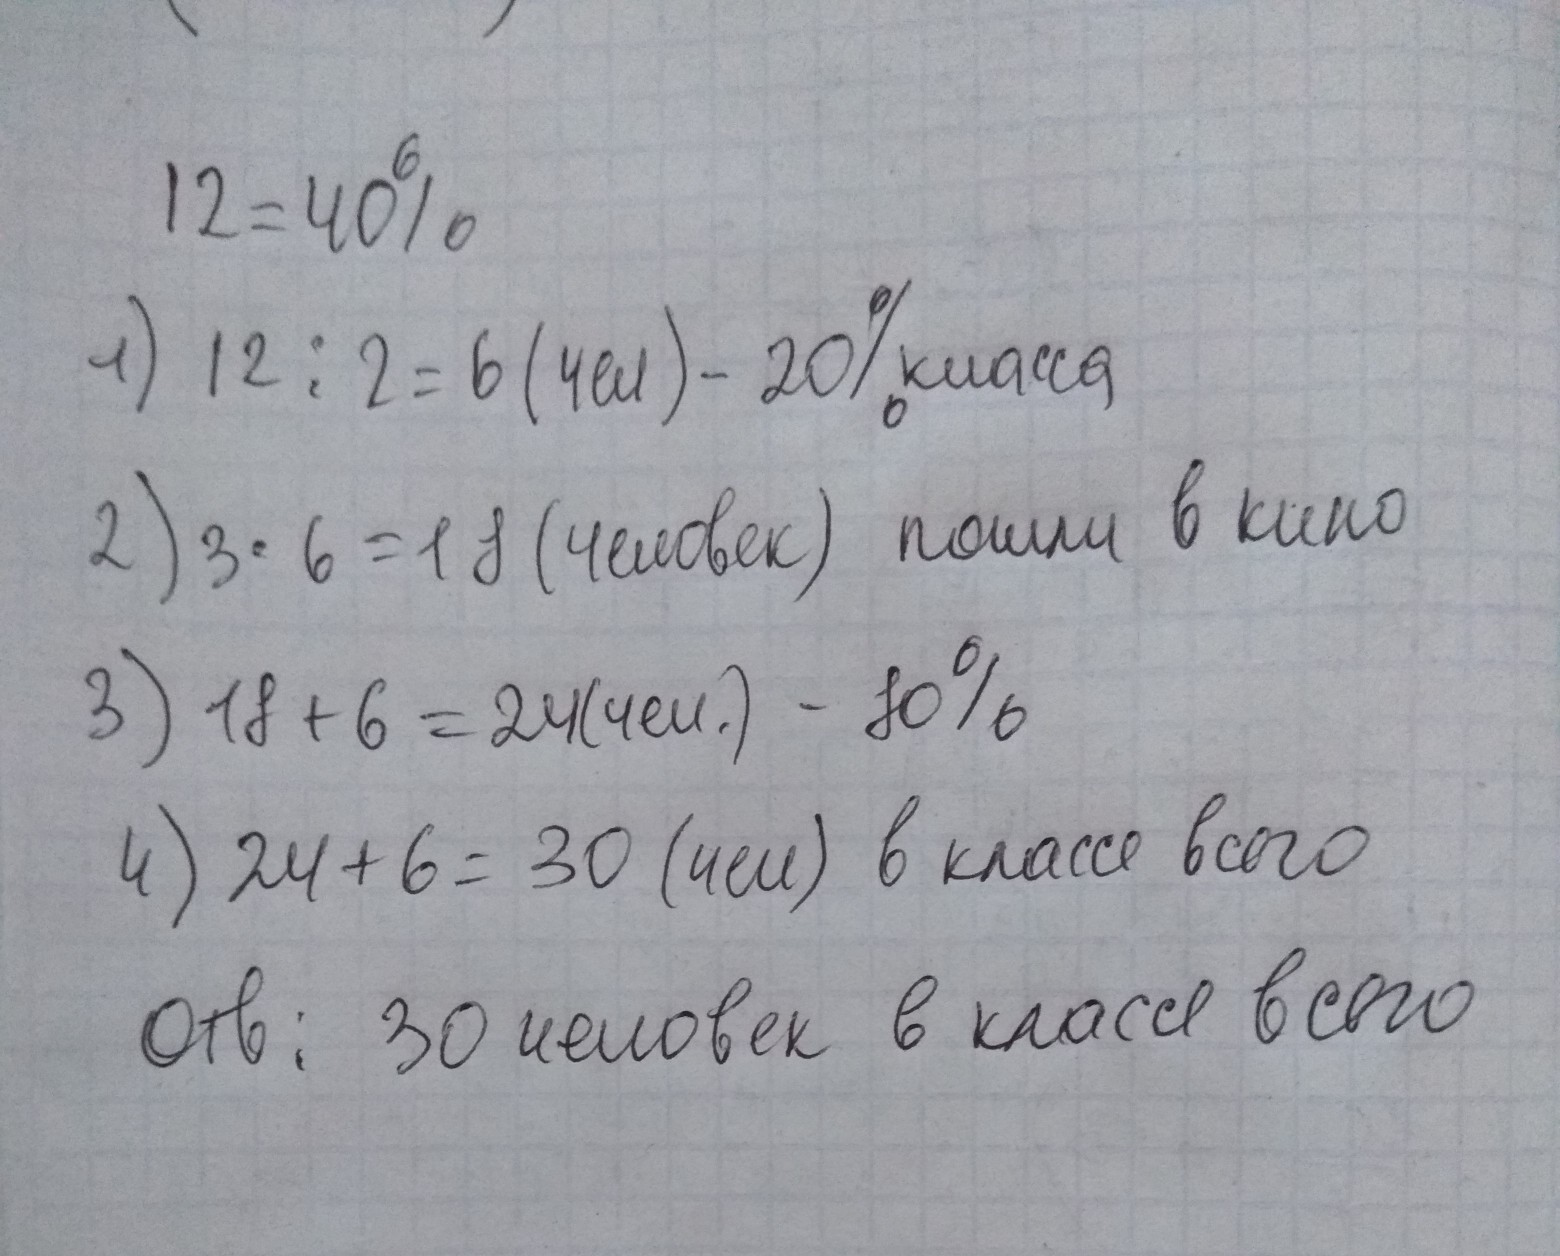 12=40%
1) 12:2=6(чел)-20% класса
2) 3·6=18(человек) пошли в кино
3) 18+6=24(чел.) - 80%
4) 24+6=30(чел) в классе всего
Отв: 30 человек в классе всего